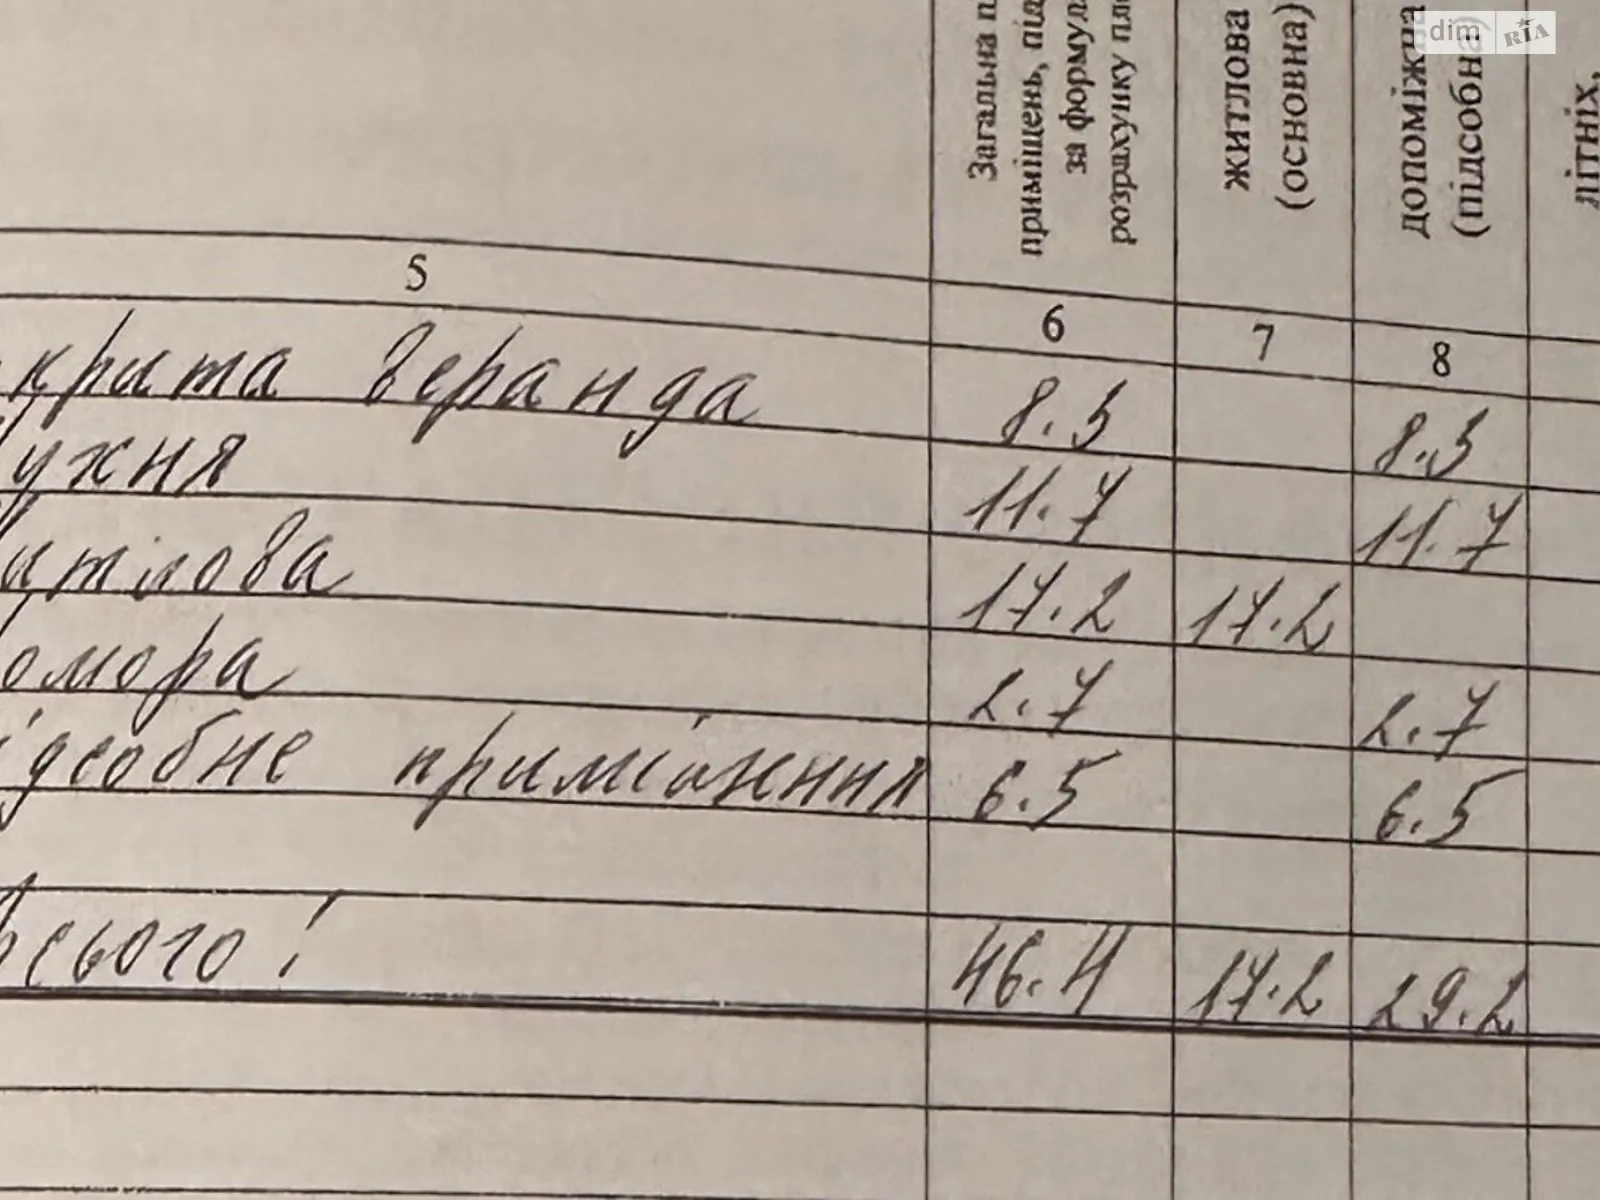 dim RIA
Загальна п
приміщень, під
за формул
розрахунку пл
житлова
(основна)
допоміжна
(підсобна)
літніх,
5 6 7 8
крита веранда 8.3 8.3
ухня 11.7 11.7
итлова 17.2 17.2
омора 2.7 2.7
ідсобне приміщення 6.5 6.5
Всього: 46.4 17.2 29.2